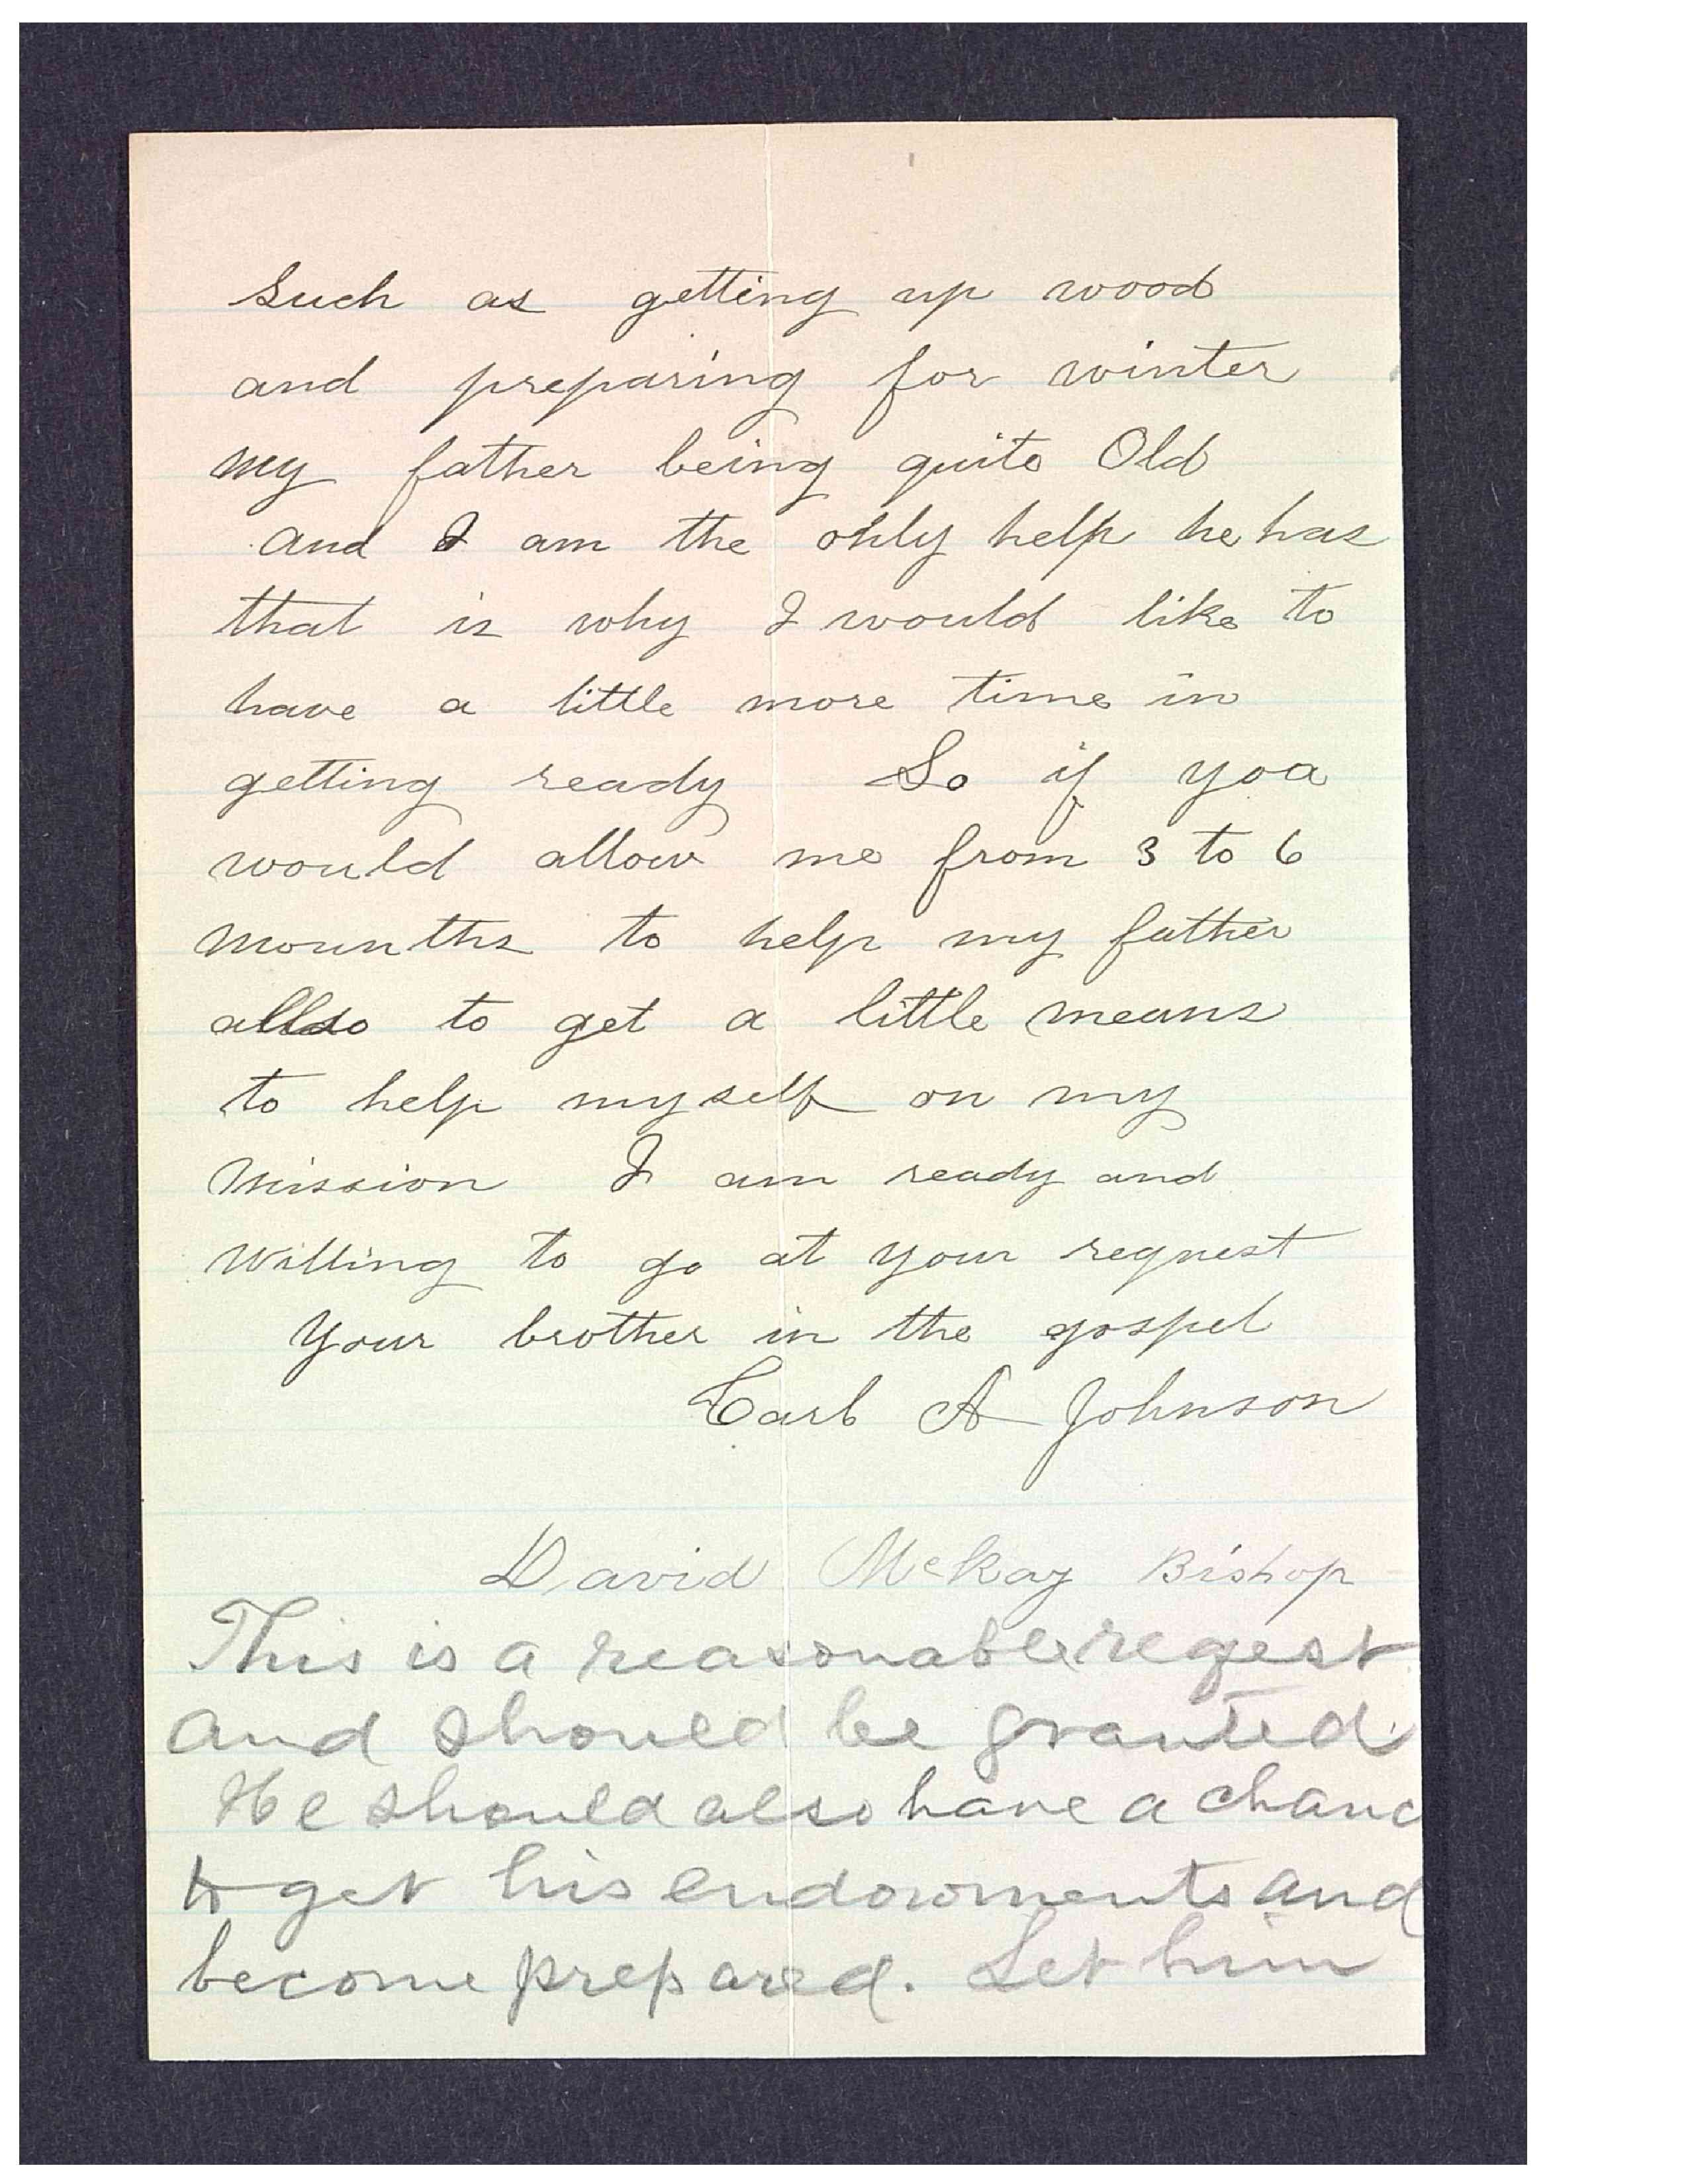 such as getting up wood
and preparing for winter
my father being quite Old
and I am the only help he has
that is why I would like to
have a little more time in
getting ready So if you
would allow me from 3 to 6
mounths to help my father
allso to get a little means
to help myself on my
mission I am ready and
willing to go at your request
Your brother in the gospel
Carl A Johnson
David McKay Bishop
This is a reasonable reqest
and should be granted.
He should also have a chanc
to get his endowments and
become prepared. Let him